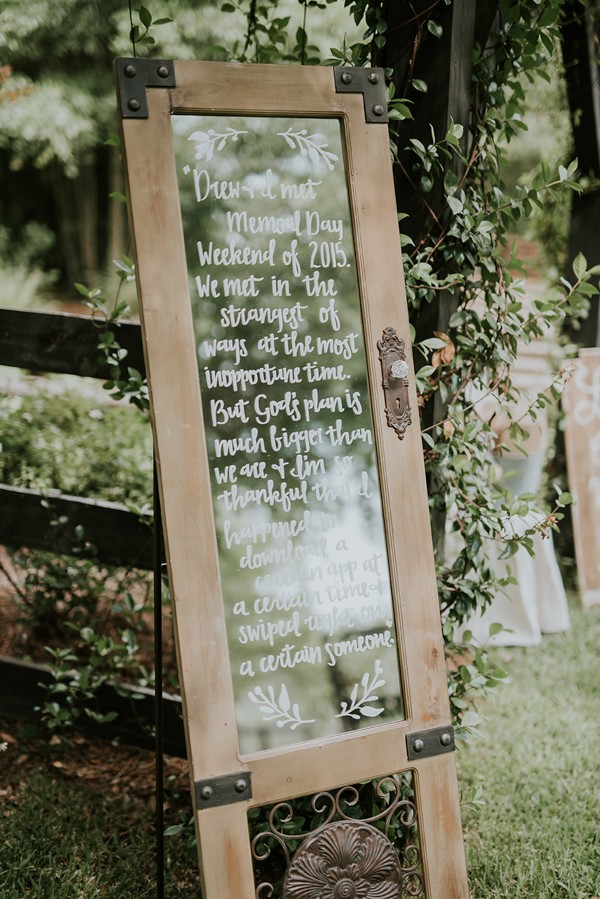 "Drew + I met
Memorial Day
Weekend of 2015.
We met in the
strangest of
ways at the most
inopportune time.
But God's plan is
much bigger than
we are + I'm so
thankful that I
happened to
download a
certain app at
a certain time +
swiped right on
a certain someone."